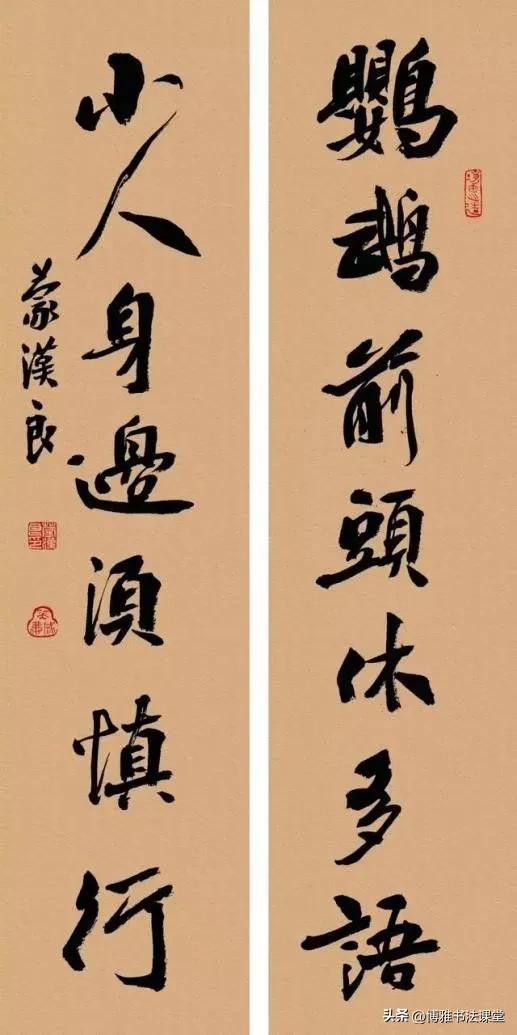 鸚鵡前頭休多語
小人身邊須慎行
蒙漢良
头条 @博雅书法课堂